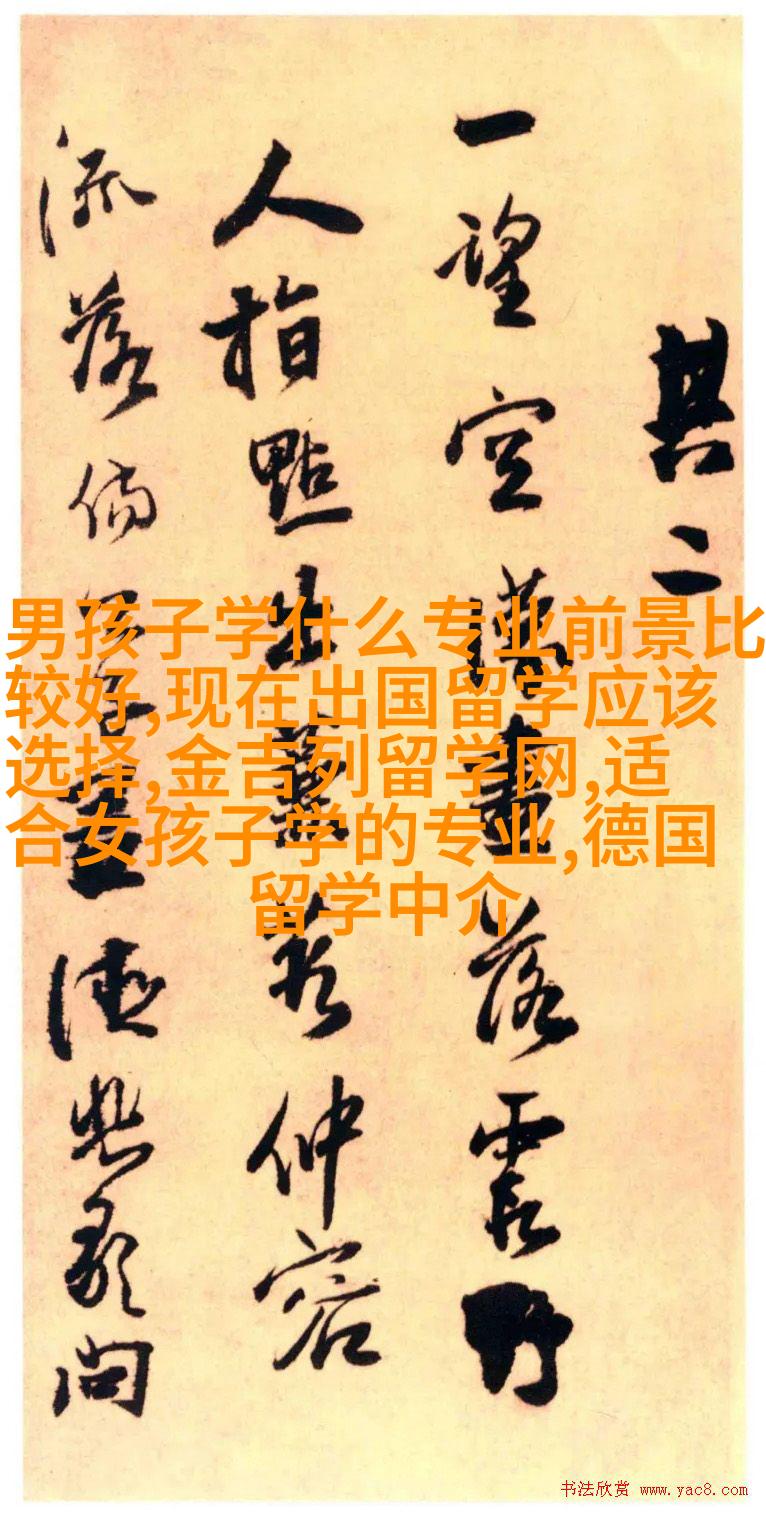 其二
一望空濛畫落霞野
人指點出若仲容
流落倘問
男孩子学什么专业前景比
较好,现在出国留学应该
选择,金吉列留学网,适
合女孩子学的专业,德国
留学中介
书法欣赏 www.yac8.com